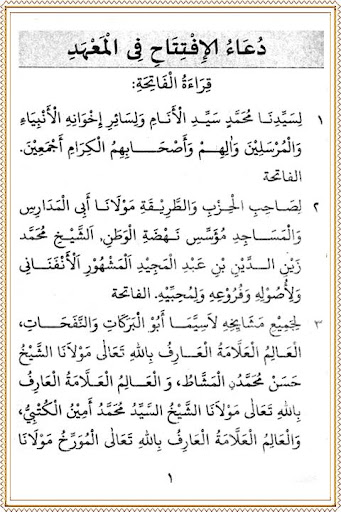 دُعَاءُ الإِفْتِتَاحِ فِى الْمَعْهَدِ
قِرَاءَةُ الْفَاتِحَةِ:
١ لِسَيِّدِنَا مُحَمَّدٍ سَيِّدِ الْأَنَامِ وَلِسَائِرِ إِخْوَانِهِ الْأَنْبِيَاءِ
وَالْمُرْسَلِيْنَ وَاٰلِهِمْ وَأَصْحَابِهِمُ الْكِرَامِ أَجْمَعِيْنَ.
الفاتحة
٢ لِصَاحِبِ الْحِزْبِ وَالطَّرِيْقَةِ مَوْلَانَا أَبِى الْمَدَارِسِ
وَالْمَسَاجِدِ مُؤَسِّسِ نَهْضَةِ الْوَطَنِ, اَلشَّيْخِ مُحَمَّدْ
زَيْنِ الدِّيْنِ بْنِ عَبْدِ الْمَجِيْدِ اَلْمَشْهُوْرِ اْلأَنْفَنَانِى
وَلِأُصُوْلِهِ وَفُرُوْعِهِ وَلِمُحِبِّيْهِ. الفاتحة
٣ لِجَمِيْعِ مَشَايِخِهِ لَاسِيَّمَا أَبُوْ الْبَرَكَاتِ وَالنَّفَحَاتِ،
الْعَالِمُ الْعَلَّامَةُ الْعَارِفُ بِاللهِ تَعَالَى مَوْلَانَا الشَّيْخُ
حَسَنْ مُحَمَّدُنِ الْمَشَّاطُ، وَ الْعَالِمُ الْعَلَّامَةُ الْعَارِفُ
بِاللهِ تَعَالَى مَوْلَانَا الشَّيْخُ السَّيِّدُ مُحَمَّدْ أَمِيْنُ الْكُتْبِيُّ،
وَالْعَالِمُ الْعَلَّامَةُ الْعَارِفُ بِاللهِ تَعَالَى الْمُوَرِّخُ مَوْلَانَا
١